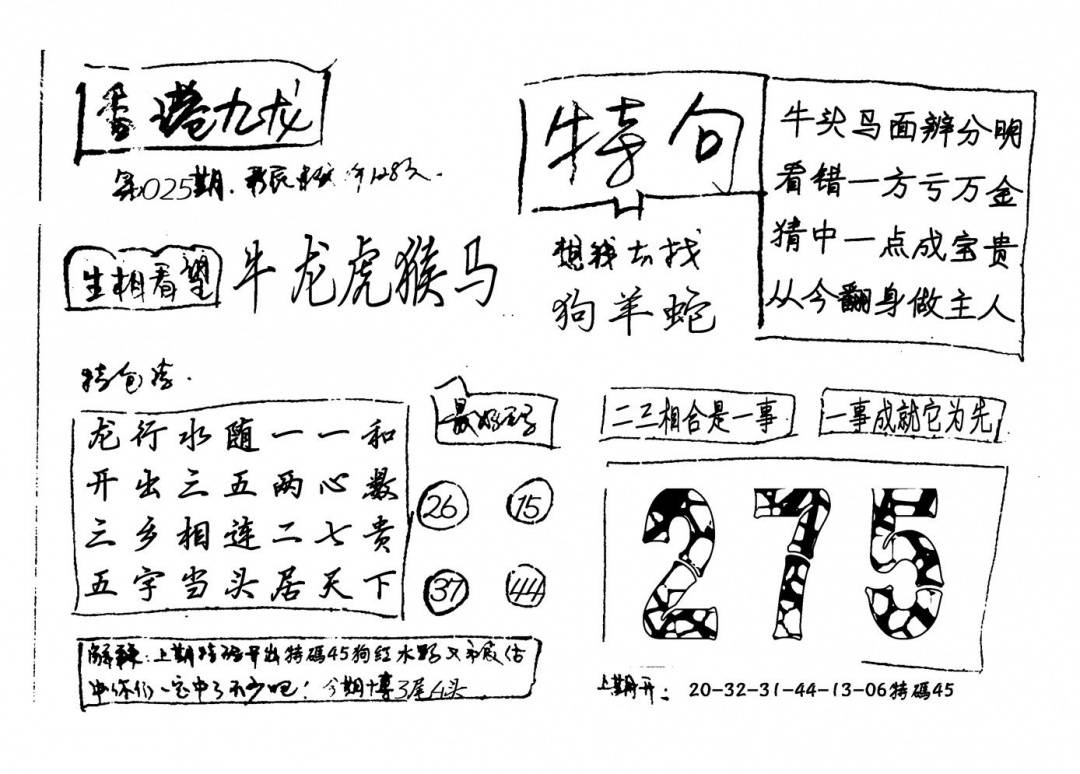 香港九龙
第025期.
生相看望
牛龙虎猴马
特句
想钱去找
狗羊蛇
牛头马面辨分明
看错一方亏万金
猜中一点成宝贵
从今翻身做主人
龙行水随一一和
开出三五两心数
三乡相连二七贵
五字当头居天下
26 15
37 44
二三相合是一事
一事成就它为先
275
解释:上期特码开出特碼45狗红水
中你们一定中了不少吧!今期博3尾4头
上期开: 20-32-31-44-13-06特碼45